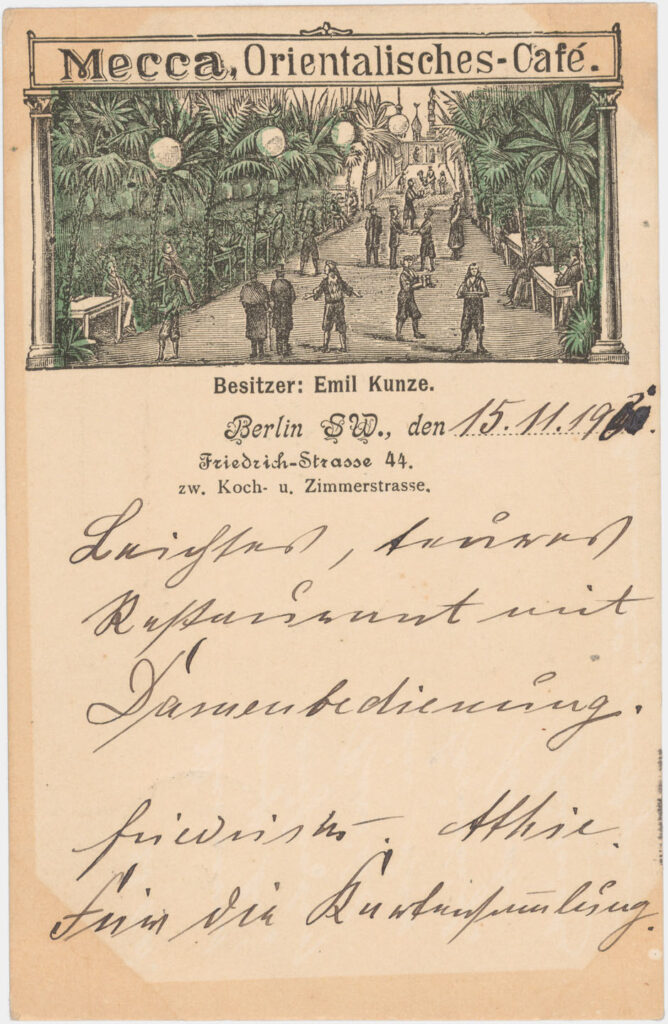 Mecca, Orientalisches-Café.
Besitzer: Emil Kunze.
Berlin SW., den 15.11.19
Friedrich-Strasse 44.
zw. Koch- u. Zimmerstrasse.
Leichtes, teures
Restaurant mit
Damenbedienung.
Für die Kartensammlung.